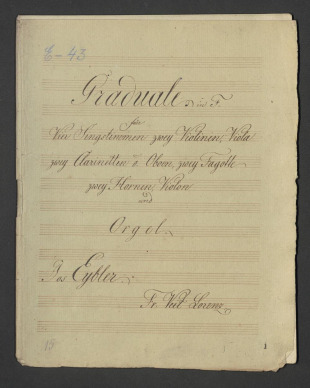 E-43
Graduale in F.
für
Vier Singstimmen, zwey Violinen, Viola
zwey Clarinetten o Oboen, zwey Fagotte
zwey Hornen, Violon
und
Orgel
Jos Eybler
Fr. Veit Lorenz
1